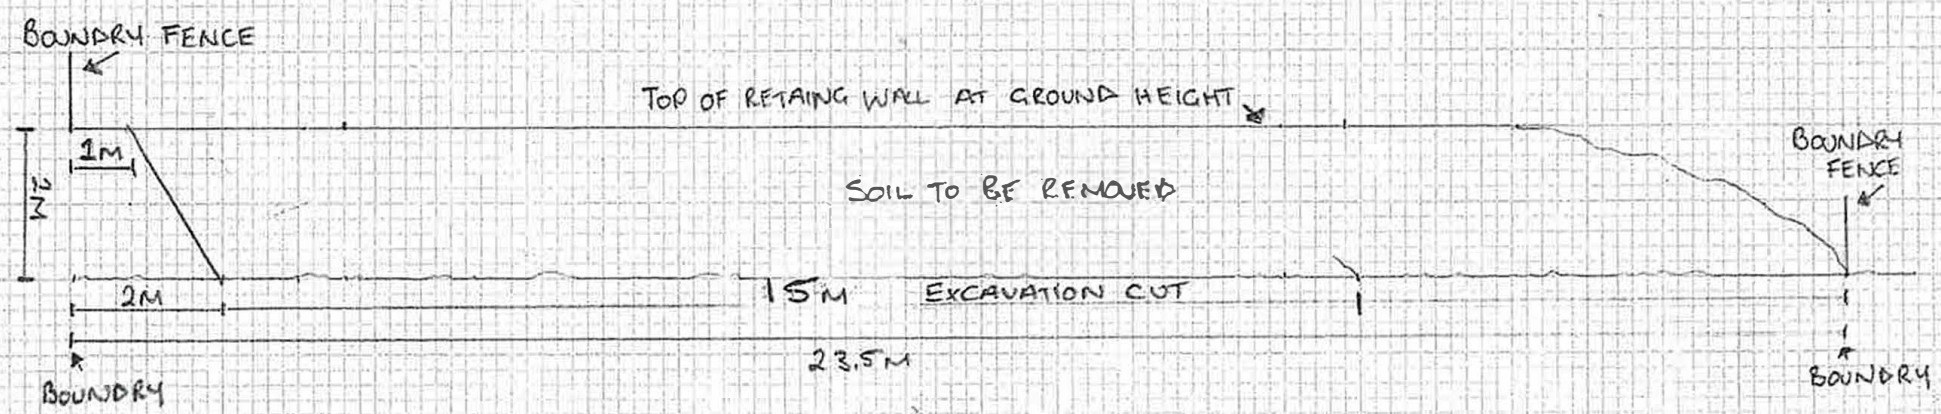 BOUNDRY FENCE
TOP OF RETAING WALL AT GROUND HEIGHT
1M
2M
BOUNDRY
FENCE
SOIL TO BE REMOVED
2M
15M EXCAVATION CUT
23.5M
BOUNDRY
BOUNDRY